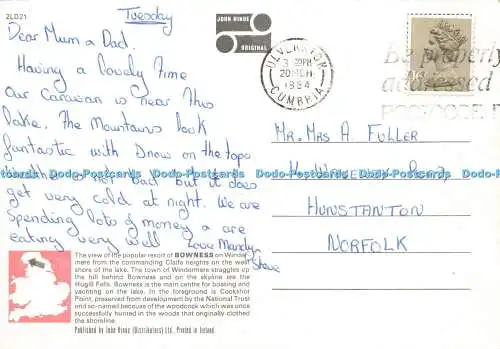 2LD21
Tuesday
JOHN HINDE
ORIGINAL
Dear Mum & Dad.
Having a lovely Time
Our Caravan is near This
lake. The Mountains look
fantastic with Snow on the tops
bad but it does
get very cold at night. We are
Spending lots of money & are
eating very well
Love Mandy
& Steve
The view of the popular resort of BOWNESS on Winder-
mere from the commanding Claife heights on the west
shore of the lake. The town of Windermere straggles up
the hill behind Bowness and on the skyline are the
Hugill Fells. Bowness is the main centre for boating and
yachting on the lake. In the foreground is Cockshot
Point, preserved from development by the National Trust
and so named because of the woodcock which was once
successfully hunted in the woods that originally clothed
the shoreline.
Published by John Hinde (Distributors) Ltd., Printed in Ireland
ULVERSTON
20 MCH
1984
CUMBRIA
Be properly
addressed
POSTCODE
Mr. Mrs A. Fuller
Road,
Hunstanton
Norfolk
Dodo-Postcards Dodo-Postcards Dodo-Postcards Dodo-Postcards Dodo-Postcards